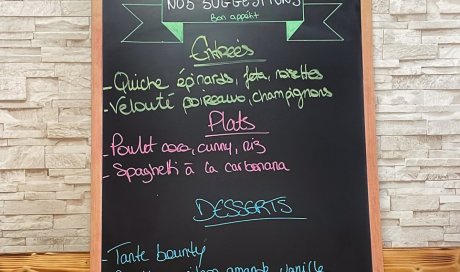 NOS SUGGESTIONS
Bon appétit
Entrées
- Quiche épinards, feta, noisettes
- Velouté poireaux, champignons
Plats
- Poulet coco, curry, riz
- Spaghetti à la carbonara
DESSERTS
- Tarte bounty
amande vanille